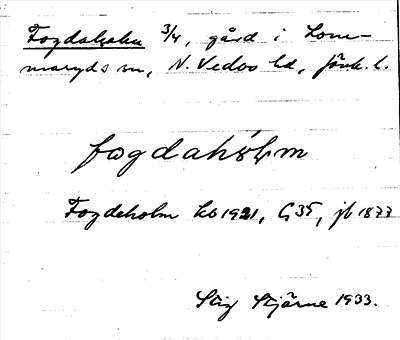 Fogdaholm 3/4, gård i Lom-
maryds sn, N. Vedbo hd, Jönk. l.
fωgdahól̥m
Fogdeholm kb 1921, G35, jb 1877
Stig Stjärne 1933.